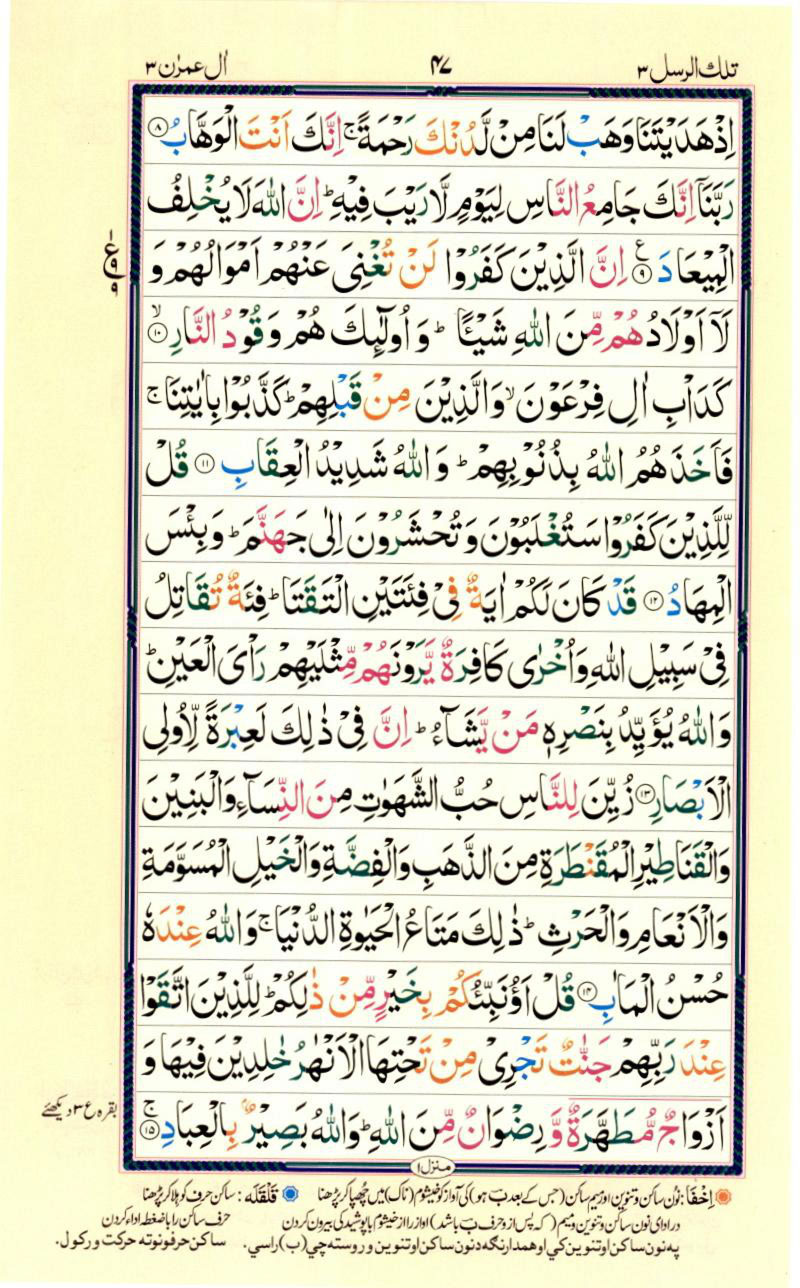 تلك الرسل ۳
۴۷
اٰل عمرٰن ۳
اِذْ هَدَیْتَنَا وَهَبْ لَنَا مِنْ لَّدُنْكَ رَحْمَةً ۚ اِنَّكَ اَنْتَ الْوَهَّابُ ﴿۸﴾
رَبَّنَاۤ اِنَّكَ جَامِعُ النَّاسِ لِیَوْمٍ لَّا رَیْبَ فِیْهِ ؕ اِنَّ اللّٰهَ لَا یُخْلِفُ
الْمِیْعَادَ ﴿۹﴾ ع اِنَّ الَّذِیْنَ كَفَرُوْا لَنْ تُغْنِیَ عَنْهُمْ اَمْوَالُهُمْ وَ
لَاۤ اَوْلَادُهُمْ مِّنَ اللّٰهِ شَیْـًٔا ؕ وَ اُولٰٓئِكَ هُمْ وَقُوْدُ النَّارِ ﴿۱۰﴾ ۙ
كَدَاْبِ اٰلِ فِرْعَوْنَ ۙ وَالَّذِیْنَ مِنْ قَبْلِهِمْ ؕ كَذَّبُوْا بِاٰیٰتِنَا ۚ
فَاَخَذَهُمُ اللّٰهُ بِذُنُوْبِهِمْ ؕ وَ اللّٰهُ شَدِیْدُ الْعِقَابِ ﴿۱۱﴾ قُلْ
لِّلَّذِیْنَ كَفَرُوْا سَتُغْلَبُوْنَ وَ تُحْشَرُوْنَ اِلٰی جَهَنَّمَ ؕ وَ بِئْسَ
الْمِهَادُ ﴿۱۲﴾ قَدْ كَانَ لَكُمْ اٰیَةٌ فِیْ فِئَتَیْنِ الْتَقَتَا ؕ فِئَةٌ تُقَاتِلُ
فِیْ سَبِیْلِ اللّٰهِ وَ اُخْرٰی كَافِرَةٌ یَّرَوْنَهُمْ مِّثْلَیْهِمْ رَاْیَ الْعَیْنِ ؕ
وَ اللّٰهُ یُؤَیِّدُ بِنَصْرِهٖ مَنْ یَّشَآءُ ؕ اِنَّ فِیْ ذٰلِكَ لَعِبْرَةً لِّاُولِی
الْاَبْصَارِ ﴿۱۳﴾ زُیِّنَ لِلنَّاسِ حُبُّ الشَّهَوٰتِ مِنَ النِّسَآءِ وَالْبَنِیْنَ
وَالْقَنَاطِیْرِ الْمُقَنْطَرَةِ مِنَ الذَّهَبِ وَالْفِضَّةِ وَالْخَیْلِ الْمُسَوَّمَةِ
وَالْاَنْعَامِ وَالْحَرْثِ ؕ ذٰلِكَ مَتَاعُ الْحَیٰوةِ الدُّنْیَا ۚ وَاللّٰهُ عِنْدَهٗ
حُسْنُ الْمَاٰبِ ﴿۱۴﴾ قُلْ اَؤُنَبِّئُكُمْ بِخَیْرٍ مِّنْ ذٰلِكُمْ ؕ لِلَّذِیْنَ اتَّقَوْا
عِنْدَ رَبِّهِمْ جَنّٰتٌ تَجْرِیْ مِنْ تَحْتِهَا الْاَنْهٰرُ خٰلِدِیْنَ فِیْهَا وَ
اَزْوَاجٌ مُّطَهَّرَةٌ وَّ رِضْوَانٌ مِّنَ اللّٰهِ ؕ وَاللّٰهُ بَصِیْرٌۢ بِالْعِبَادِ ﴿۱۵﴾ ۚ
ع ۹
بقرہ ع ۳ دیکھئے
منزل ۱
اِخْفَا: نون ساکن و تنوین اور میم ساکن (جس کے بعد ب ہو) کی آواز کو خیشوم (ناک) میں چھپا کر پڑھنا قَلْقَلَه: ساکن حرف کو ہلا کر پڑھنا
در ادای نون ساکن و تنوین و میم (که پس از و حرف ب باشد) آواز را از خیشوم با پوشیدگی بیرون کردن حرف ساکن را با ضغطه اداء کردن
په نون ساکن او تنوین کي او همدارنګه د نون ساکن او تنوین وروسته چي (ب) راسي. ساکن حرفونو ته حرکت ورکول.